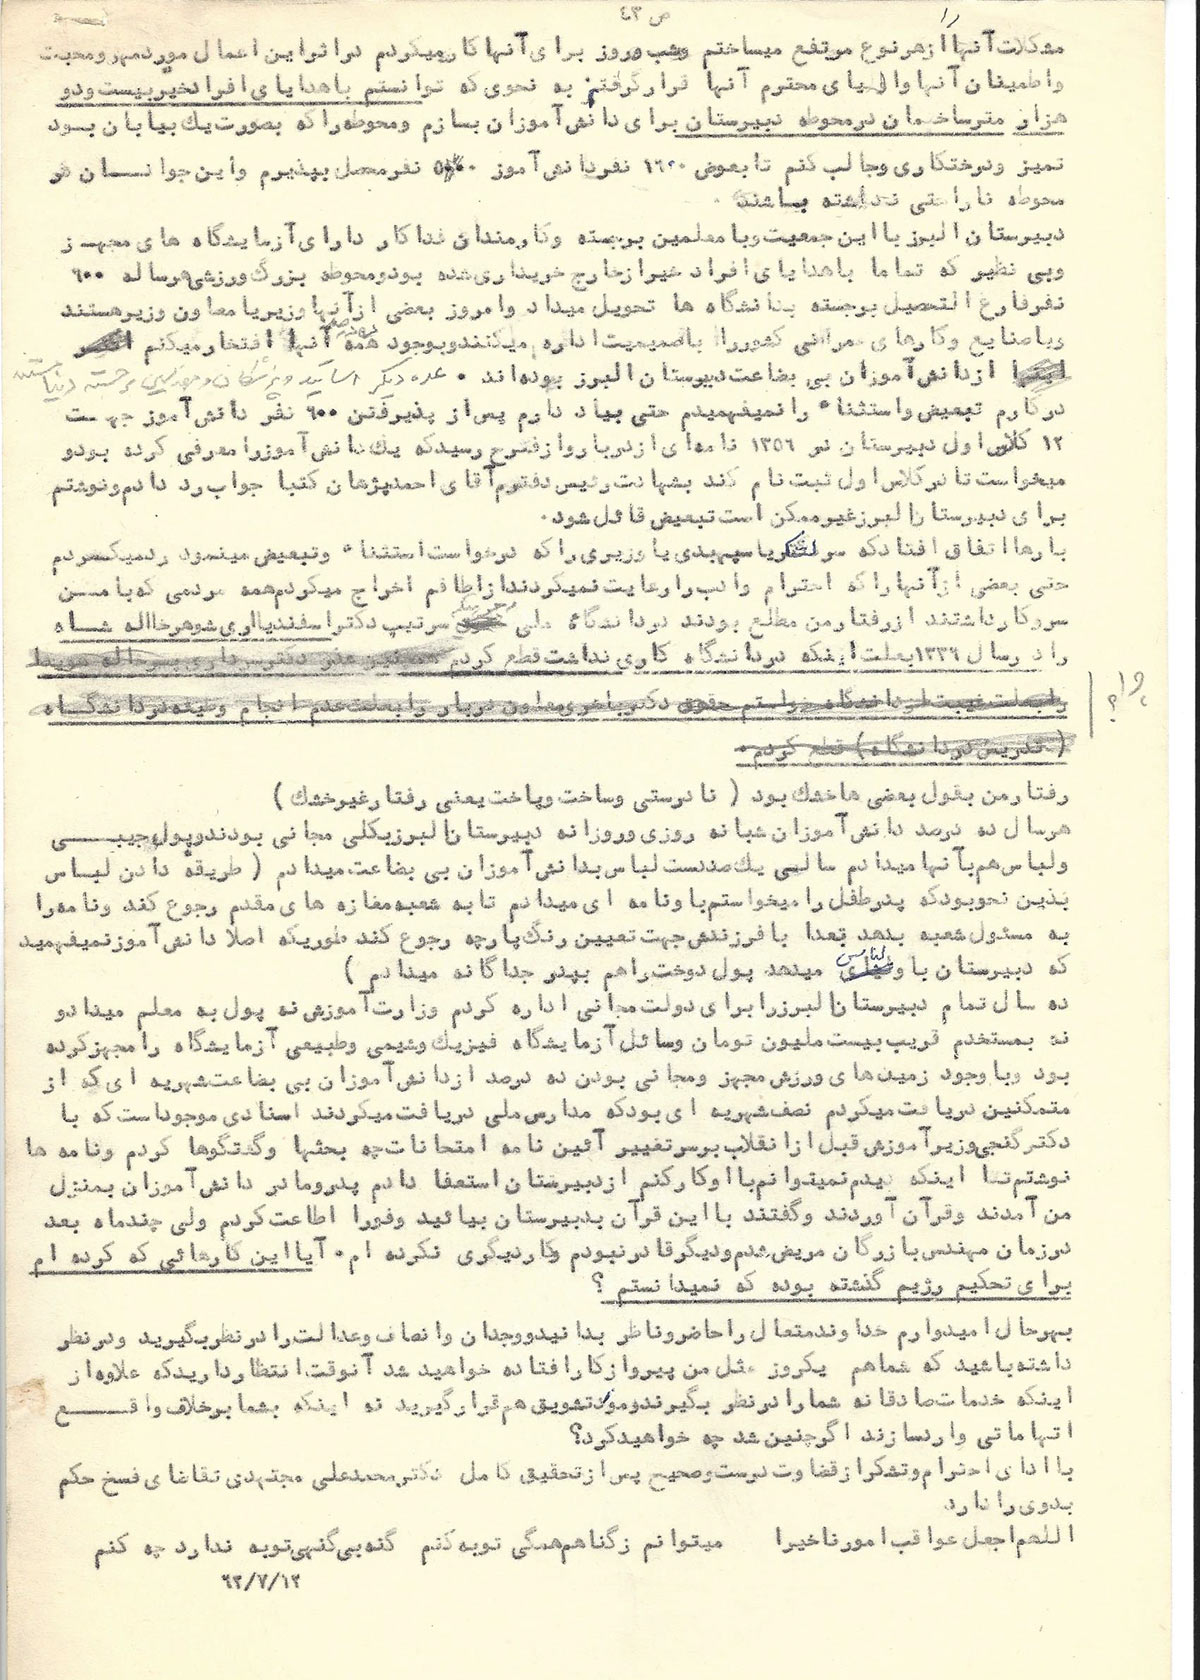 ص ٤٣
را
مشکلات آنها از هر نوع مرتفع میساختم وشب وروز برای آنها کار میکردم دراثر این اعمال مورد مهر ومحبت
واطمینان آنها واولیای محترم آنها قرار گرفتم به نحوی که توانستم باهدایای افراد خیر بیست ودو
هزار متر ساختمان در محوطه دبیرستان برای دانش آموزان بسازم ومحوطه را که بصورت یک بیابان بود
تمیز ودرختکاری وجالب کنم تابعوض ۱٦۰۰ نفر دانش آموز نفر محصل بپذیرم واین جوانان در
محوطه ناراحتی نداشته باشند .
دبیرستان البرز بااین جمعیت وبا معلمین برجسته وکارمندان فداکار دارای آزمایشگاه های مجهز
وبی نظیر که تماما باهدایای افراد خیر از خارج خریداری شده بود ومحوطه بزرگ ورزشی هرساله ٦۰۰
نفر فارغ التحصیل برجسته بدانشگاه ها تحویل میداد وامروز بعضی ازآنها وزیر یا معاون وزیر هستند
ویاصنایع وکارهای عمرانی کشوررا باصمیمیت اداره میکنند وبوجود همه آنها افتخار میکنم
ازدانش آموزان بی بضاعت دبیرستان البرز بوده اند . عده دیگر اساتید و پزشکان و مهندسین برجسته دنیا هستند
درکارم تبعیض واستثناء را نمیفهمیدم حتی بیاد دارم پس از پذیرفتن ٦۰۰ نفر دانش آموز جهت
۱۲ کلاس اول دبیرستان در ۱۳٥٦ نامه ای ازدربار وازفرح رسیدکه یک دانش آموزرا معرفی کرده بودو
میخواست تادرکلاس اول ثبت نام کند بشهادت رئیس دفترم آقای احمدپژهان کتبا جواب رد دادم ونوشتم
برای دبیرستان البرز غیرممکن است تبعیض قائل شود.
بارها اتفاق افتادکه سرلشکر یا سپهبدی یا وزیری را که درخواست استثناء وتبعیض مینمود ردمیکردم
حتی بعضی ازآنهارا که احترام وادب را رعایت نمیکردند ازاطاقم اخراج میکردم همه مردمی که با من
سروکارداشتند ازرفتارمن مطلع بودند دردانشگاه ملی سرتیپ دکتر اسفندیاری شوهر خاله شاه
را درسال ۱۳۳٦ بعلت اینکه دردانشگاه کاری نداشت قطع کردم
چرا؟
( تدریس دردانشگاه) قطع کردم.
رفتارمن بقول بعضی ها خشک بود ( نادرستی وساخت وپاخت یعنی رفتار غیرخشک )
هرسال ده درصد دانش آموزان شبانه روزی وروزانه دبیرستان البرز بکلی مجانی بودند وپول جیبی
ولباس هم بآنها میدادم سالی یک صددست لباس بدانش آموزان بی بضاعت میدادم ( طریقه دادن لباس
بدین نحو بودکه پدرطفل را میخواستم باونامه ای میدادم تابه شعبه مغازه های مقدم رجوع کند ونامه را
به مسئول شعبه بدهد بعدا بافرزندش جهت تعیین رنگ پارچه رجوع کند طوریکه اصلا دانش آموز نمیفهمید
که دبیرستان باو لباس میدهد پول دوخت راهم بپدر جداگانه میدادم )
ده سال تمام دبیرستان البرزرا برای دولت مجانی اداره کردم وزارت آموزش نه پول به معلم میدادو
نه بمستخدم قریب بیست ملیون تومان وسائل آزمایشگاه فیزیک وشیمی وطبیعی آزمایشگاه را مجهزکرده
بود وباوجود زمین های ورزش مجهز ومجانی بودن ده درصد ازدانش آموزان بی بضاعت شهریه ای که از
متمکنین دریافت میکردم نصف شهریه ای بودکه مدارس ملی دریافت میکردند اسنادی موجوداست که با
دکتر گنجی وزیرآموزش قبل ازانقلاب برسر تغییر آئین نامه امتحانات چه بحثها وگفتگوها کردم ونامه ها
نوشتم تا اینکه دیدم نمیتوانم بااوکارکنم ازدبیرستان استعفا دادم پدرومادر دانش آموزان بمنزل
من آمدند وقرآن آوردند وگفتند بااین قرآن بدبیرستان بیائید وفورا اطاعت کردم ولی چندماه بعد
درزمان مهندس بازرگان مریض شدم ودیگرقادرنبودم وکاردیگری نکرده ام. آیا این کارهائی که کرده ام
برای تحکیم رژیم گذشته بوده که نمیدانستم ؟
بهرحال امیدوارم خداوندمتعال را حاضروناظر بدانیدووجدان وانصاف وعدالت رادرنظربگیرید ودرنظر
داشته باشید که شماهم یکروز مثل من پیر وازکارافتاده خواهید شد آنوقت انتظارداریدکه علاوه از
اینکه خدمات صادقانه شمارا درنظر بگیرند ومورد تشویق هم قرارگیرید نه اینکه بشما برخلاف واقع
اتهاماتی واردسازند اگرچنین شد چه خواهیدکرد؟
باادای احترام وتشکر ازقضاوت درست وصحیح پس ازتحقیق کامل دکتر محمدعلی مجتهدی تقاضای فسخ حکم
بدوی را دارد
اللهم اجعل عواقب امورنا خیرا میتوانم زگناهم همگی توبه کنم گنه بی گنهی توبه ندارد چه کنم
٦۲/۷/۱۲